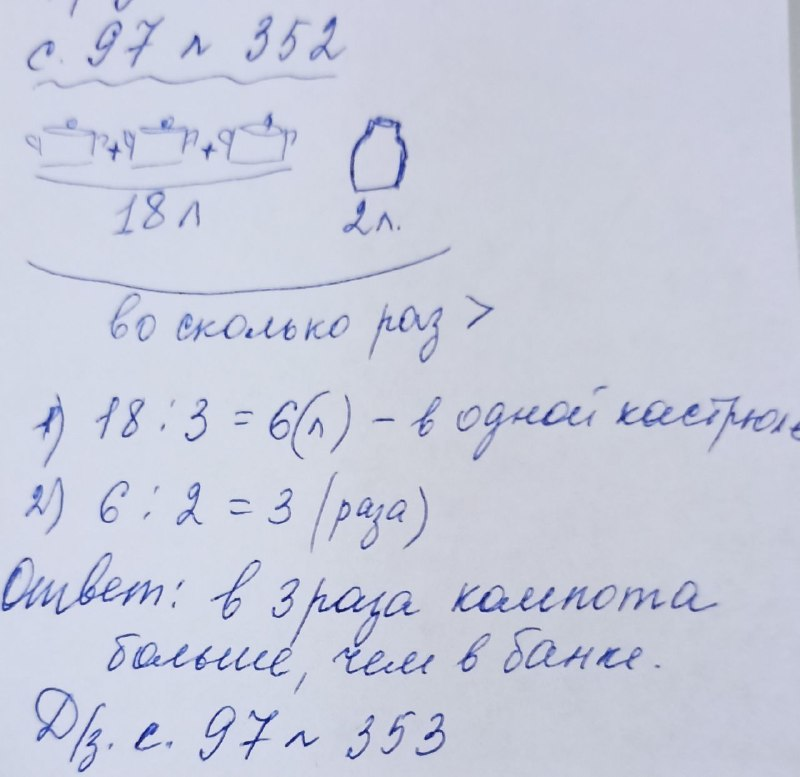 с. 97 № 352
+ +
18 л 2 л.
во сколько раз >
1) 18 : 3 = 6 (л) – в одной кастрюле
2) 6 : 2 = 3 (раза)
Ответ: в 3 раза компота
больше, чем в банке.
Д/з. с. 97 № 353